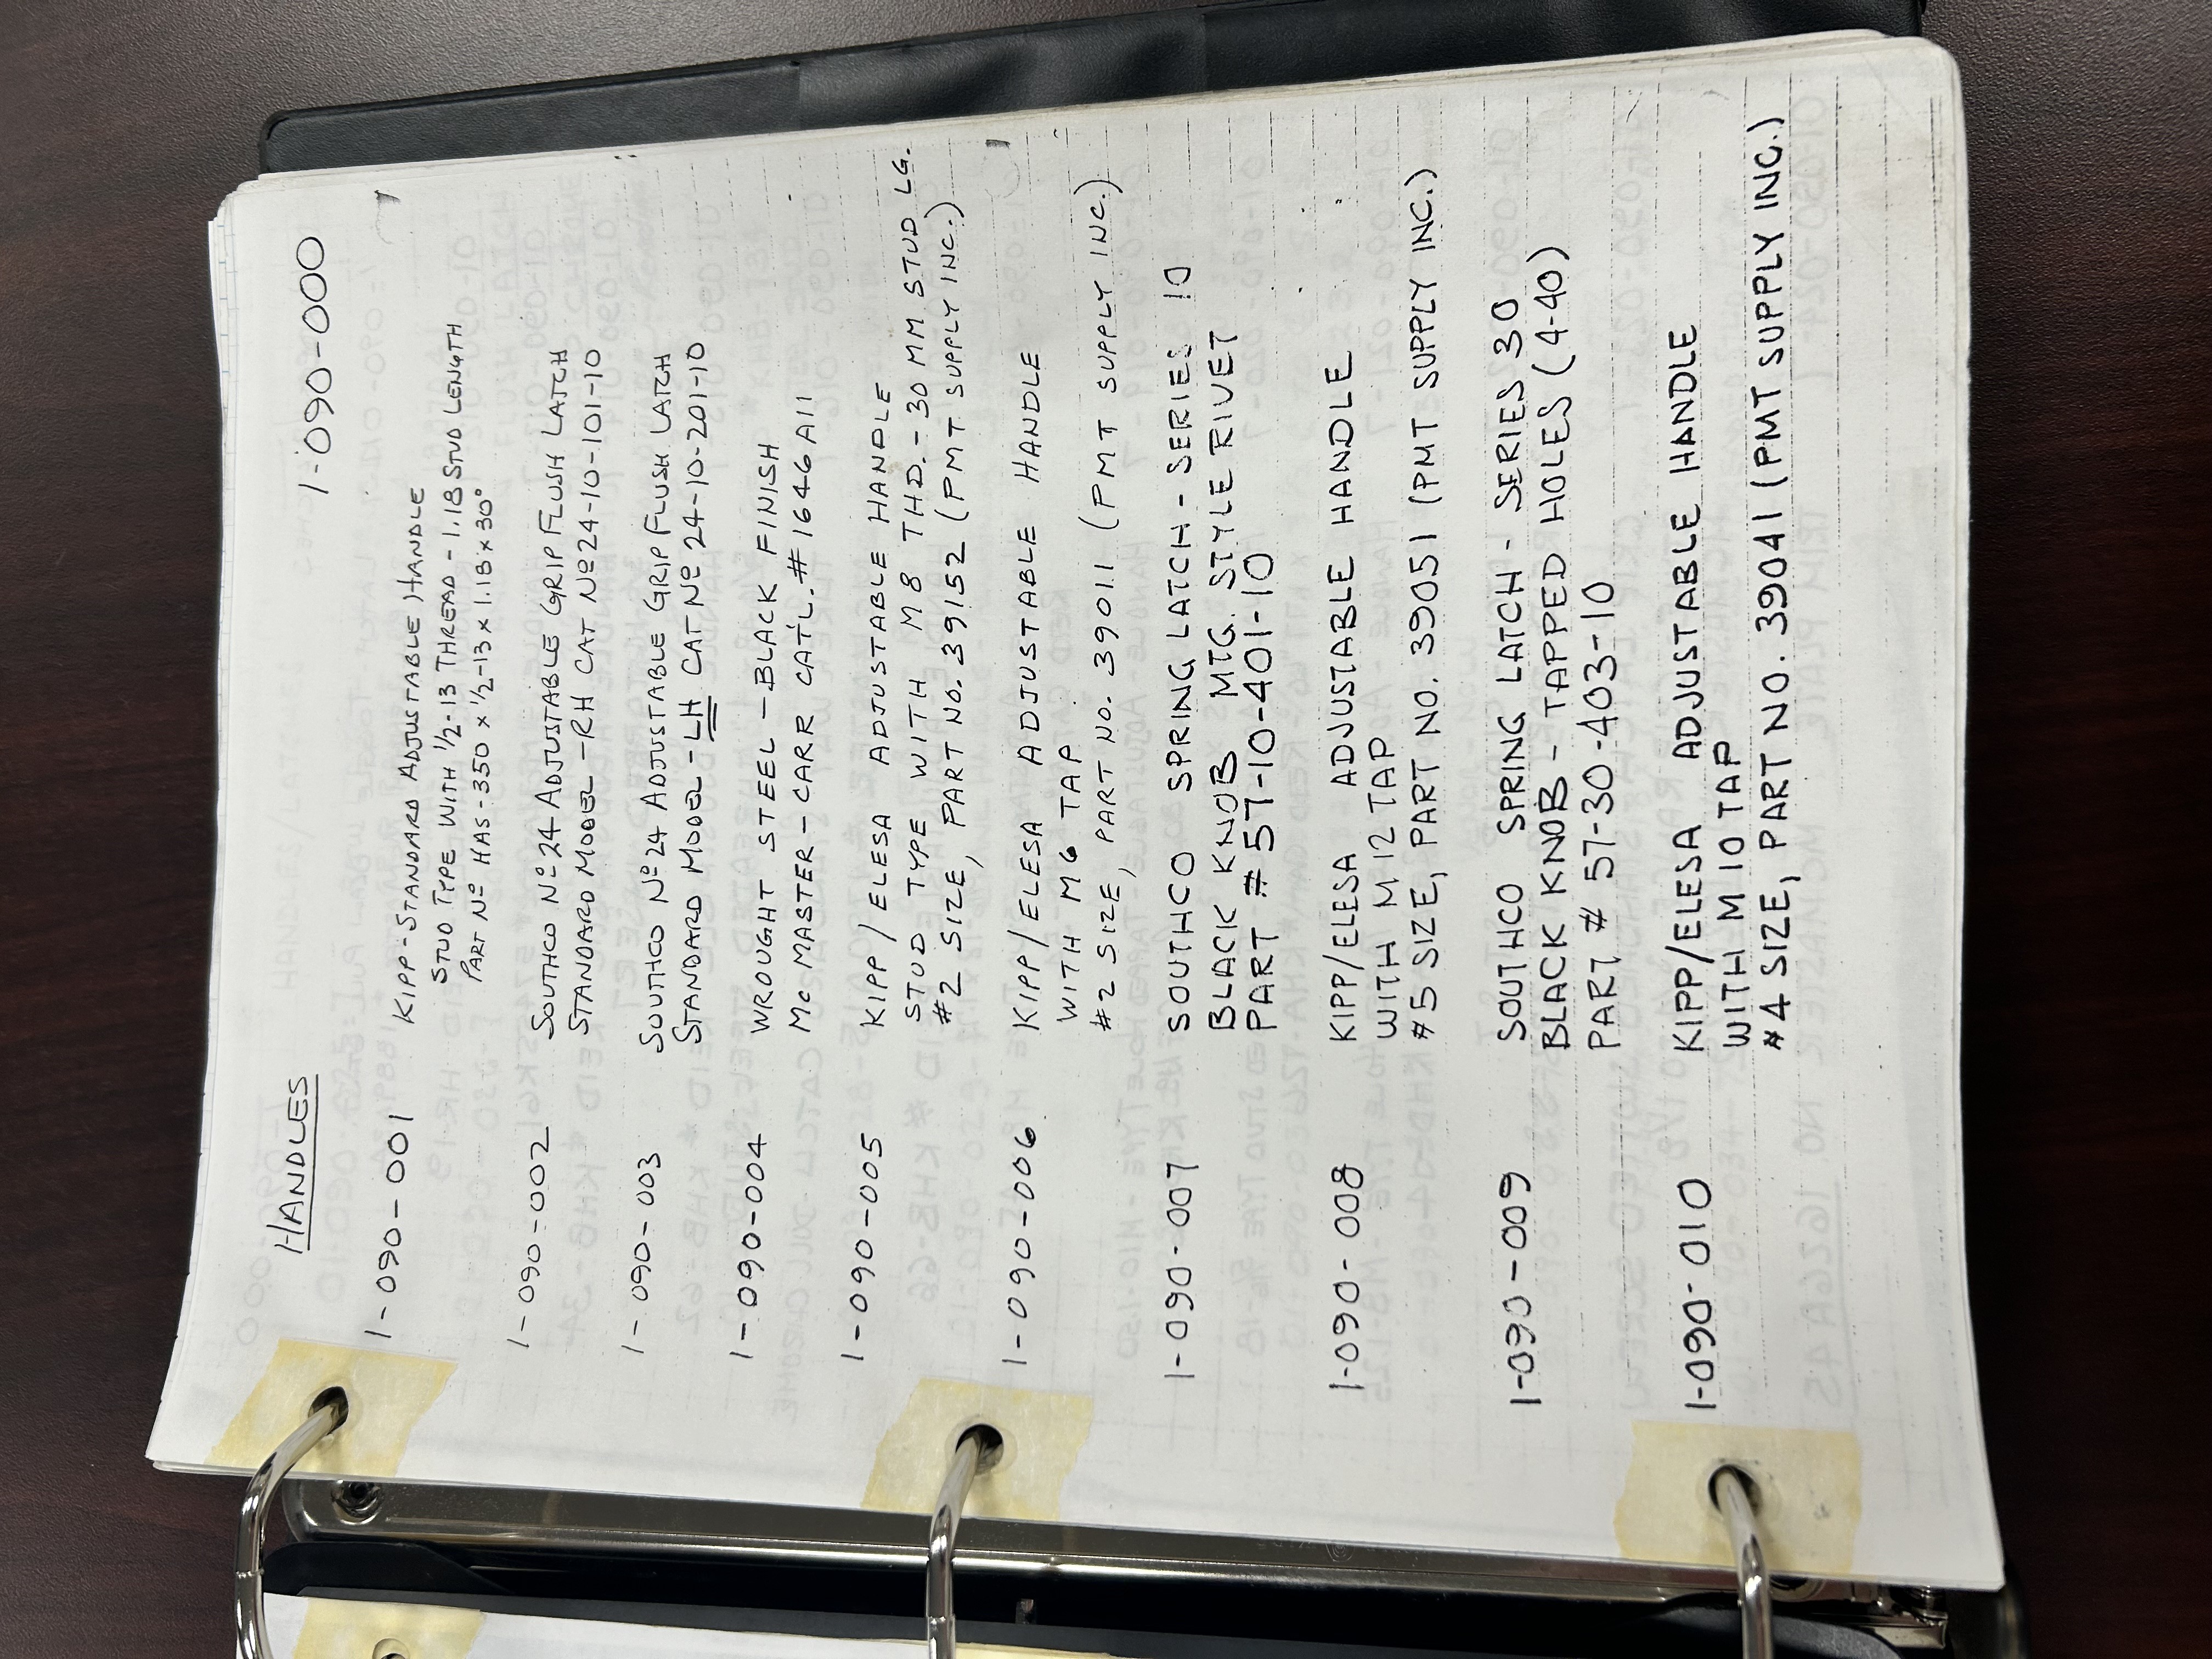 HANDLES
1-090-000
1-090-001 KIPP-STANDARD ADJUSTABLE HANDLE
STUD TYPE WITH 1/2-13 THREAD - 1.18 STUD LENGTH
PART Nº HAS-350 x 1/2-13 x 1.18 x 30°
1-090-002 SOUTHCO Nº 24 ADJUSTABLE GRIP FLUSH LATCH
STANDARD MODEL - RH CAT Nº 24-10-101-10
1-090-003 SOUTHCO Nº 24 ADJUSTABLE GRIP FLUSH LATCH
STANDARD MODEL - LH CAT Nº 24-10-201-10
1-090-004 WROUGHT STEEL - BLACK FINISH
Mc MASTER - CARR CAT'L. # 1646A11
1-090-005 KIPP / ELESA ADJUSTABLE HANDLE
STUD TYPE WITH M8 THD. - 30 MM STUD LG.
#2 SIZE, PART NO. 39152 (PMT SUPPLY INC.)
1-090-006 KIPP/ELESA ADJUSTABLE HANDLE
WITH M6 TAP
#2 SIZE, PART NO. 39011 (PMT SUPPLY INC.)
1-090-007 SOUTHCO SPRING LATCH - SERIES 10
BLACK KNOB MTG. STYLE RIVET
PART # 57-10-401-10
1-090-008 KIPP/ELESA ADJUSTABLE HANDLE
WITH M12 TAP
#5 SIZE, PART NO. 39051 (PMT SUPPLY INC.)
1-090-009 SOUTHCO SPRING LATCH - SERIES 30
BLACK KNOB - TAPPED HOLES (4-40)
PART # 57-30-403-10
1-090-010 KIPP/ELESA ADJUSTABLE HANDLE
WITH M10 TAP
#4 SIZE, PART NO. 39041 (PMT SUPPLY INC.)